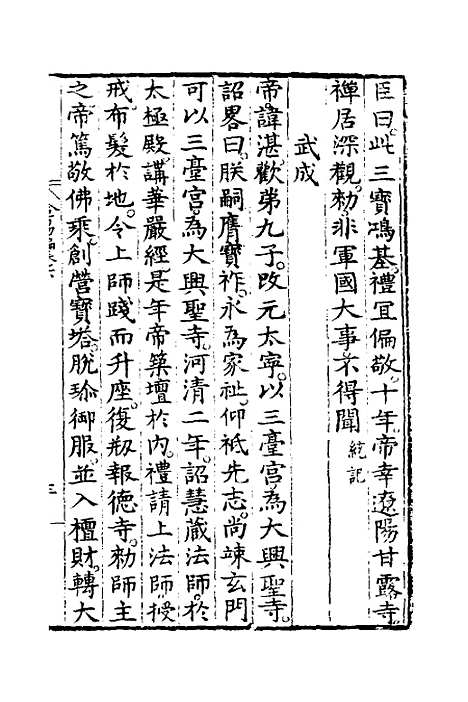 臣曰。此三寶鴻基。禮宜偏敬。十年。帝幸遼陽甘露寺。
禪居深觀。勑非軍國大事不得聞 統記
武成
帝諱湛。歡弟九子。改元太寧。以三臺宮為大興聖寺。
詔畧曰。朕嗣膺寶祚。永為家祉。仰祗先志。尚竦玄門
可以三臺宮。為大興聖寺。河清二年。詔慧藏法師。於
太極殿。講華嚴經。是年帝築壇於內。禮請上法師授
戒。布髮於地。令上師踐而升座。復剏報德寺。勑師主
之。帝篤敬佛乘。創營寶塔。脫珍御服。並入檀財。轉大